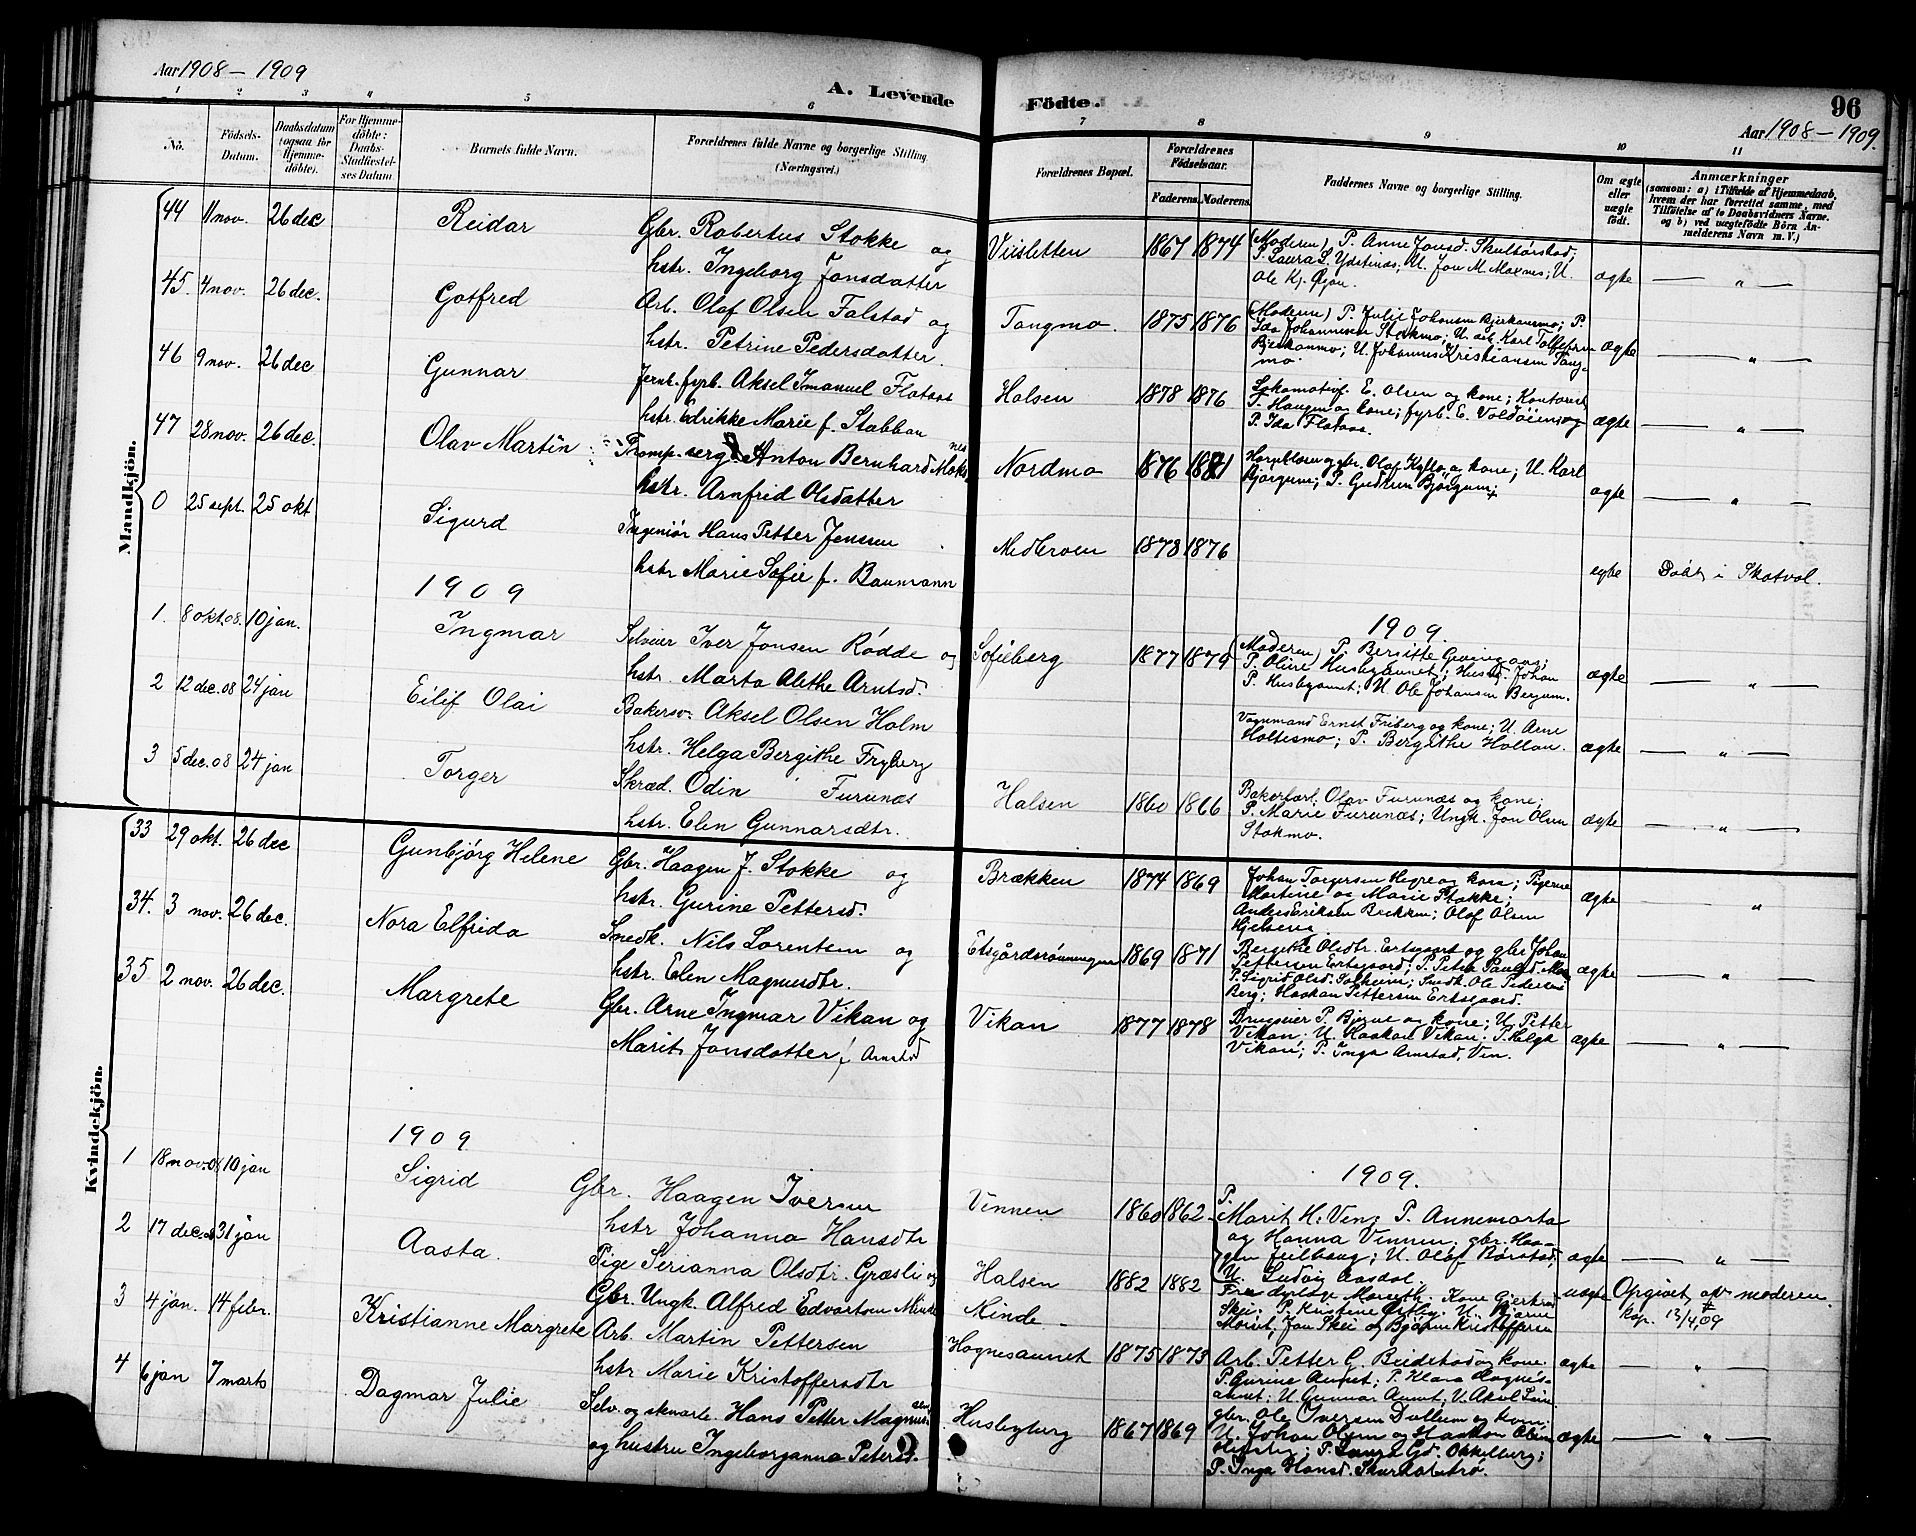 Aar 1908 – 1909
A. Levende
Födte.
96
Aar 1908 – 1909.
1 2 3 4 5 6 7 8 9 10 11
No.
Födsels-Datum.
Daabsdatum (ogsaa for Hjemmedöbte).
For Hjemmedöbte: Daabs-Stadfæstelses Datum.
Barnets fulde Navn.
Forældrenes fulde Navne og borgerlige Stilling (Næringsvei.)
Forældrenes Bopæl.
Forældrenes Födselsaar.
Faderens. Moderens.
Faddernes Navne og borgerlige Stilling.
Om ægte eller uægte födt.
Anmærkninger
(saasom: a) i Tilfælde af Hjemmedaab, hvem der har forrettet samme, med Tilföielse af to Daabsvidners Navne. og b) ved uægtefödte Börn Anmelderens Navn m. V.)
Mandkjön.
44 11 nov. 26 dec Reidar Gbr. Robertus Stokke og
hstr. Ingeborg Jonsdatter
Viisletten 1867 1874 (Moderen) P. Anne Jonsd. Skultørstad;
P. Laura L. Ydstines; U. Jon M. Moxnes; U.
Ole Kj. Øyan. ægte — " —
45. 4 nov. 26 dec. Gotfred Arb. Olaf Olsen Falstad og
hstr. Petrine Pedersdatter.
Tangmo. 1875 1876 (Moderen) P. Julie Johansen Bjerkansmo; P.
Ida Johannesen Stokmo; U. arb. Karl Tollefsen
Bjerkanmo; U. Johannes Kristiansen Tangmo. ægte — " —
46 9 nov. 26 dec Gunnar Jernb. fyrb. Aksel Imanuel Flataas
hstr. Edrikke Marie f. Stabban
Halsen 1878 1876 Lokomotivf. E. Olsen og kone; Kontorist
T. Haugen og kone; fyrb. E. Voldøien og
P. Ida Flataas. ægte — " —
47 28 nov. 26 dec. Olav Martin Tromp. serg. Anton Bernhard Moksnes
hstr. Arnfrid Olsdatter
Nordmo 1876 1881 og gbr. Olaf og kone; U. Karl
Bjørgum; P. Gudrun Bjørgum; ægte — " —
0 25 sept. 25 okt Sigurd Ingeniør Hans Petter Jenssen
hstr Marie Sofie f. Baumann
Medbroen 1873 1876 egte Døbt i Skatval.
1909
1909.
1. 8 okt. 08. 10 jan. Ingmar Selveier Iver Jonsen Rødde og
hstr. Marta Alethe Arntsd.
Sofieberg 1877 1879 (Moderen) P. Beritte Gevingaas;
P. Oline Husbyaunet; Husb. Johan
P. Husbyaunet; U. Ole Johansen Bergum. ægte — " —
2 12 dec. 08 24 jan Eilif Olai Bakersv. Aksel Olsen Holm
hstr. Helga Bergithe Fryberg
Vognmand Ernst Friberg og kone; U. Arne
Holtesmo; P. Bergithe Hollan. ægte — " —
3 5 dec. 08 24 jan Torger Skræd. Odin Furunæs
hstr. Elen Gunnarsdtr.
Halsen 1860 1866 Bakerlærl. Olav Furunæs og kone;
P. Marie Furunæs; Ungk. Jon Olsen
Stokmo. ægte — " —
Kvindekjön.
33 29 okt. 26 dec Gunbjørg Helene Gbr. Haagen J. Stokke og
hstr. Gurine Pettersd.
Brækken 1874 1869 Johan Torgersen Hegre og kone; Pigerne
Martine og Marie Stokke;
Anders Eriksen Brekken; Olof Olsen
ægte — "
34. 3 nov. 26 dec. Nora Elfrida Snedk. Nils Lorentsen og
hstr. Elen Magnusdtr.
Etsgårdsrønningen 1869 1871 Bergithe Olsdtr. Ertsgaard og gbr. Johan
Pettersen Ertsgaard; P. Petra Paulsd.
P. Sigrid Olsd. Snedk. Ole Pedersen
Berg; Haakan Pettersen Ertsgaard. ægte — " —
35 2 nov. 26 dec. Margrete Gbr. Arne Ingmar Vikan og
Marit Jonsdotter f. Arnstad
Vikan 1877 1878 Brugseier P. Bjerve og kone; U. Petter
Vikan; U. Haakon Vikan; P. Helga
Vikan; P. Inga Arnstad, Ven. ægte — " —
1909
1909.
1 18 nov. 08 10 jan Sigrid Gbr. Haagen Iversen
hstr Johanna Hansdtr
Vinnen 1860 1862 P. Marit H. Ven; P. Annemarta
og Hanna Vinnen; gbr. Haagen Feilberg; U. Olaf Børstad;
U. Ludvig Aasdal. ægte — " —
2 17 dec. 08 31 jan Aasta. Pige Serianna Olsdtr. Græsli og
Gbr. Ungk. Alfred Edvartsen
Halsen Kinde 1882 1882 Kone
Skei; P. Kristine Østby; U. Bjarne
Jon Skei og Bjørn Kristoffersen uægte Opgivet af moderen.
13/4, 09
3 4 jan. 14 febr. Kristianne Margrete Arb. Martin Pettersen
hstr Marie Kristoffersdtr
Hognesaunet 1875 1873 Arb. Petter G. Beidstad og kone.
P. Gurine Aunet; P. Klara Hognesaunet; U. Gunnar Aunet; ægte — " —
4 6 jan 7 marts Dagmar Julie Selv. og skoarb. Hans Petter Magnussen
og hustru Ingeborganna Petersd.
Husbyberg 1867 1869 gbr. Ole Iversen Dullum og kone;
U. Johan Olsen og Haakon Olsen
P. Laura Gd. Okkelberg;
P. Inga Hansd. ægte — " —